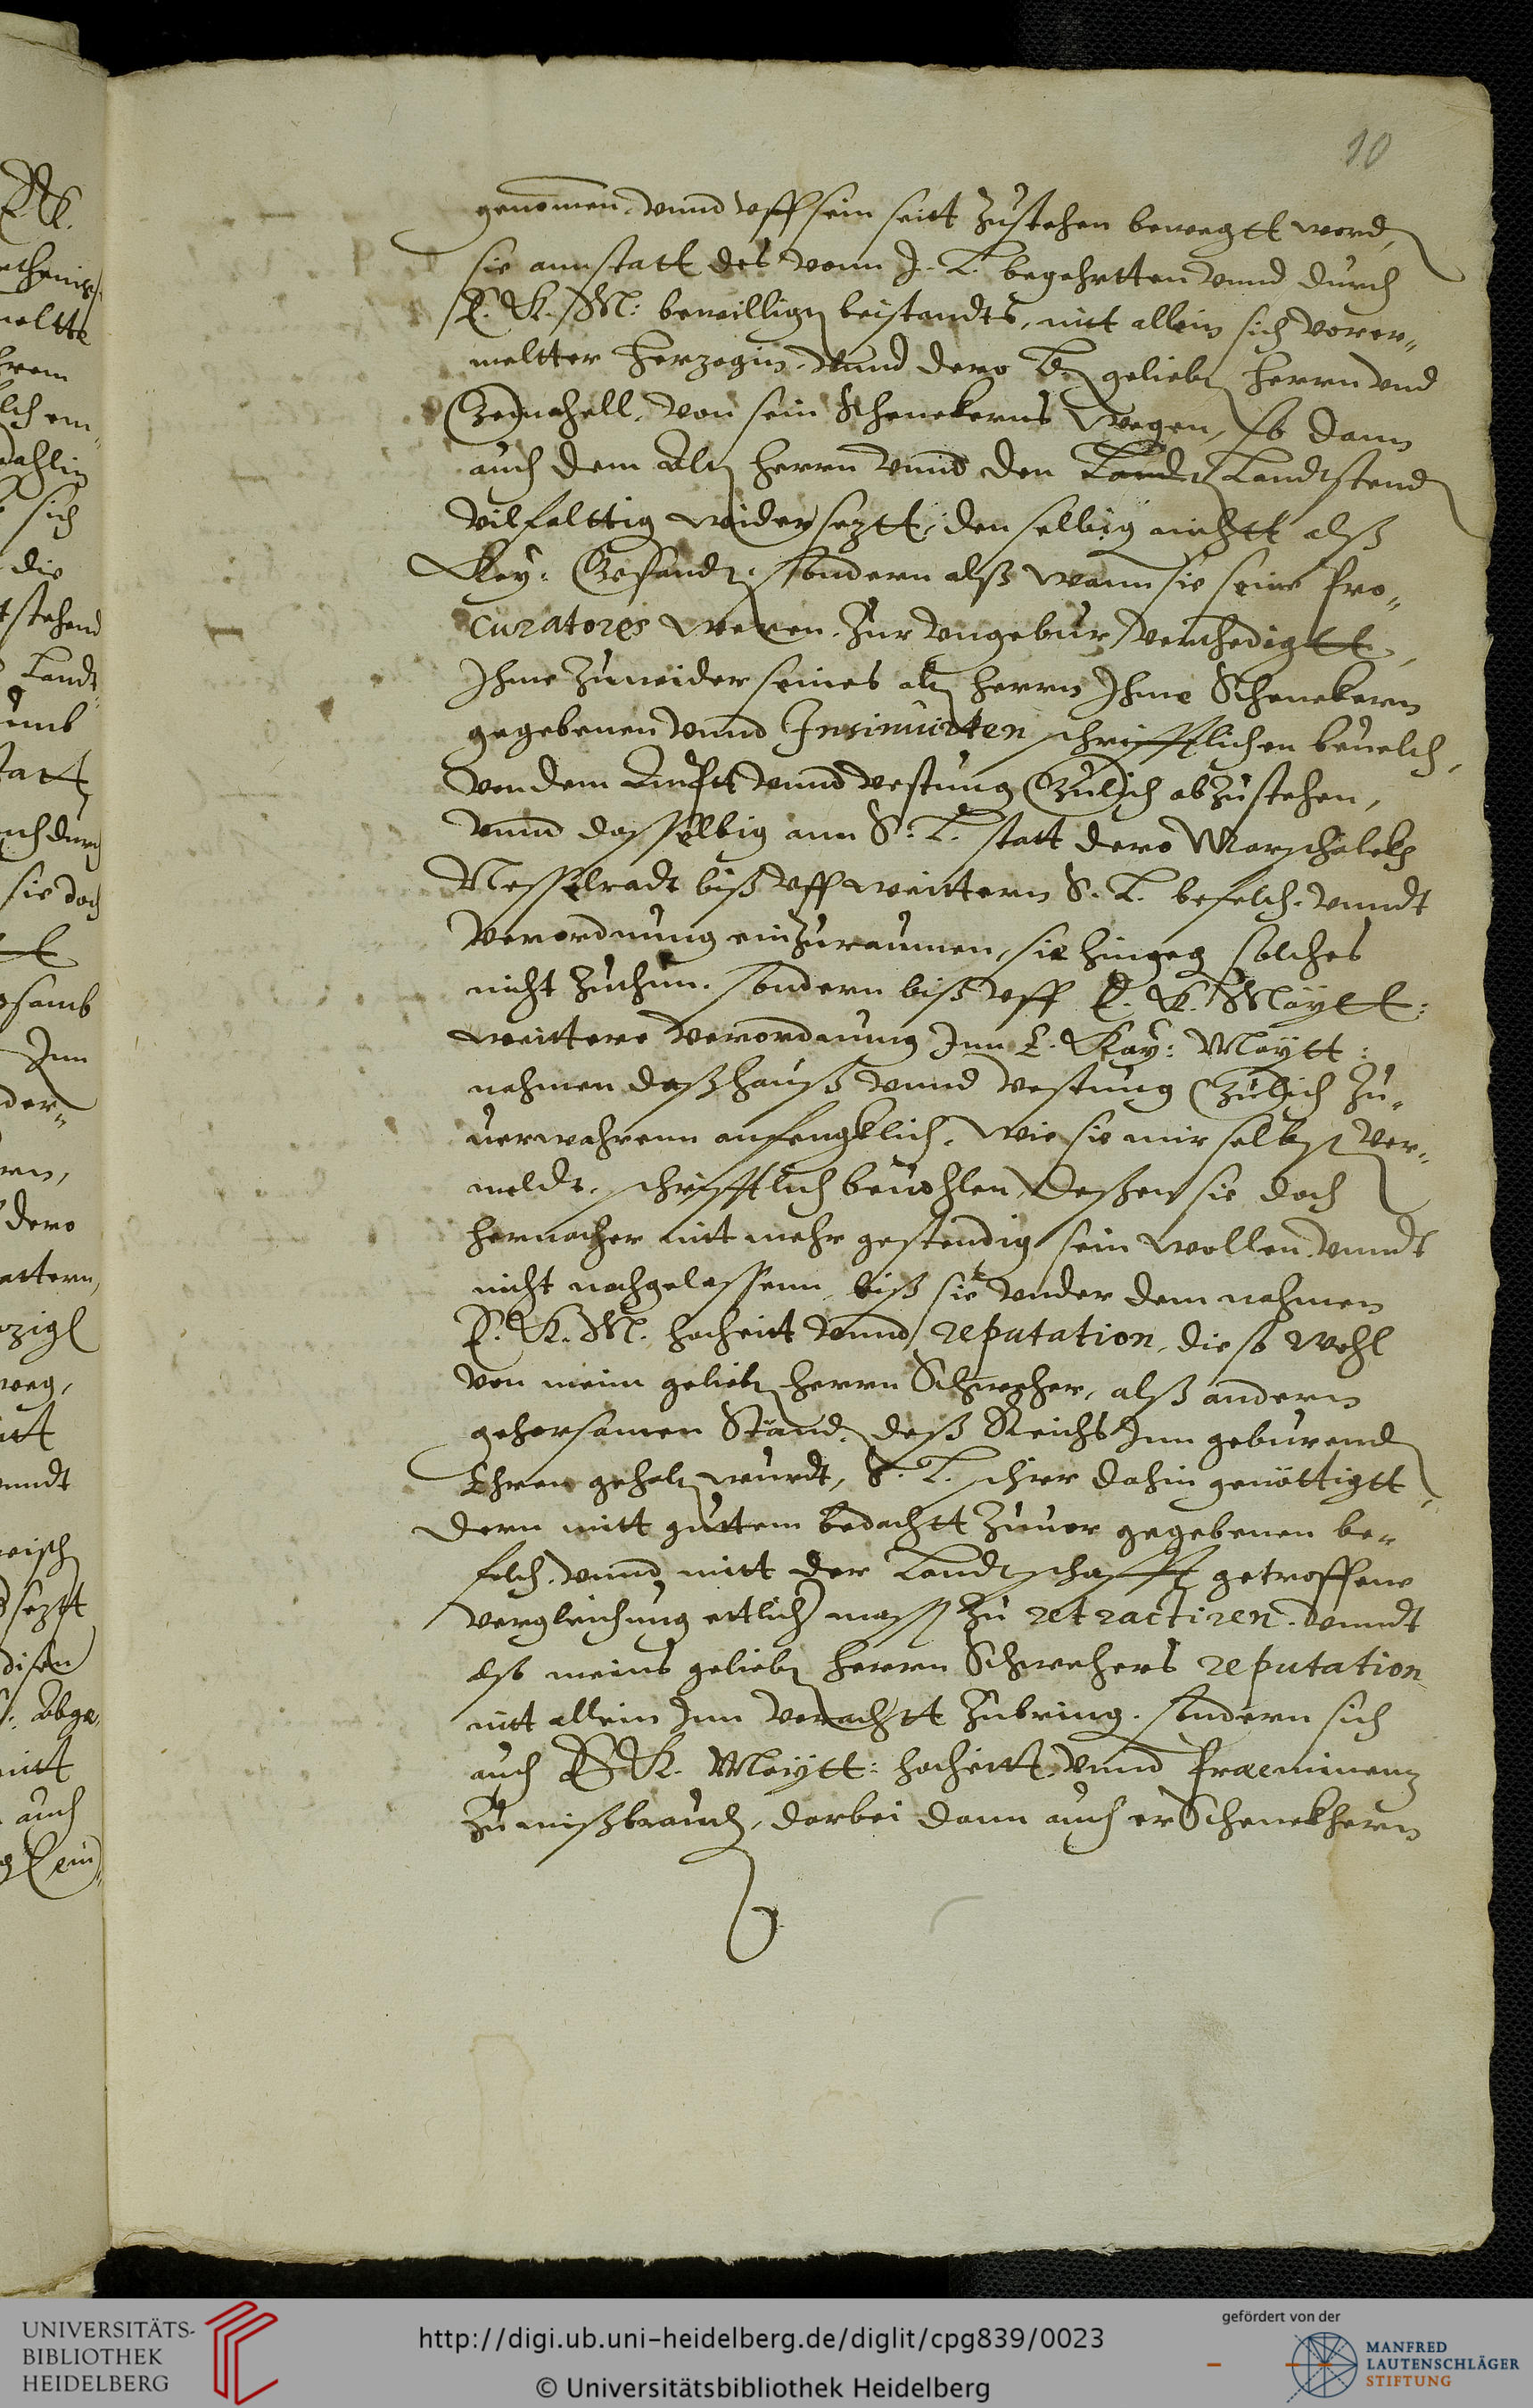 10
genomen, vnnd vff sein seitt zustehen bewegtt word,
sie annstatt des vonn I. L. begehrtten vnnd durch
E. K. M: bewilligten beistandts, nit allein sich vorer„
meltter Herzogin, vnnd dero L. geliebten Herrn vnd
Gemahell, von sein Schenckerns wegen, so dann
auch dem Alten Herrn vnnd den Landt Landtstend
vilfalttig widerseztt, denselbig nichtt alß
Key: Gesandt: sondern alß wann sie seine Pro„
curatores weren, zur vngebur verthedigtt,
Ihme zuwider seines alten Herrn Ihme Schenckern
gegebenen vnnd Insinuirten schrifftlichen beuelch,
von dem Ambtt vnnd vestung Gülich abzustehen,
vnnd dasselbig ann S. L. statt dero Marschalckh
Nesselradt biß vff weittern S. L. befelch vnndt
verordnung einzuraumen, sie hingeg solches
nicht zuthun, sondern biß vff E. K. Maytt:
weittere verordnung Inn E. Kay: Maytt:
nahmen daß hauß vnnd vestung Gülich zu„
uerwahrenn anfengklich, wie sie mir selbst ver„
meldt, schrifftlich beuohlen, deßen sie doch
hernacher nit mehr gestendig sein wollen, vnndt
nicht nachgelassenn, biß sie vnder dem nahmen
E. K. M. hocheit vnnd reputation, die so wohl
von meim geliebten Herrn Schweher, alß andern
gehorsamen Stand, deß Reichs Inn geburend
Ehren gehalten wurdt, S. L. schier dahin genöttigtt
dern mitt guttem bedachtt zuuor gegebenen be„
felch, vnnd mitt der Landtschafft getroffene
vergleichung ettlicher mass zu retractiren, vnndt
also meins geliebten Herrn Schwehers reputation
nit allein Inn verachtt zubring, sondern sich
auch E. K. Maytt: hocheitt vnnd Praeminenz
zumißbrauch, darbei dann auch er Schenckhern
UNIVERSITÄTS-
BIBLIOTHEK
HEIDELBERG
http://digi.ub.uni-heidelberg.de/diglit/cpg839/0023
© Universitätsbibliothek Heidelberg
gefördert von der
MANFRED
LAUTENSCHLÄGER
STIFTUNG